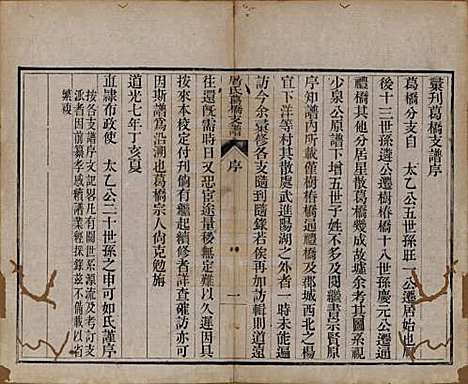 彙刊葛橋支譜序
葛橋分支自　太乙公五世孫旺一公遷居始也厥
後十三世孫遴公遷樹椿橋十八世孫慶元公遷
禮橋其餘分居星散葛橋幾成故墟余考其圖系視
少泉公原譜下增五世子姓不多及閱繼書宗賢原
序知譜內所載僅樹椿橋通禮橋及郡城西北之楊
官下洋等村其散處武進陽湖之外者一時未能遍
訪今余彙修各支隨到隨錄若俟再加訪輯則道遠
屠氏葛橋支譜　序　一
往還旣需時日又恐宦途量移無以久遲因具
按來本校定付刊倘有繼起續修者詳查確訪
因斯譜爲沿溯也葛橋宗人尙克勉旃
道光七年丁亥夏
直隸布政使　太乙公二十世孫之申可如氏謹序
按各支譜序文記各件凡有關世系源流及考訂支
派者因前纂孝咸續諸業經採錄茲不備載以省
繁複